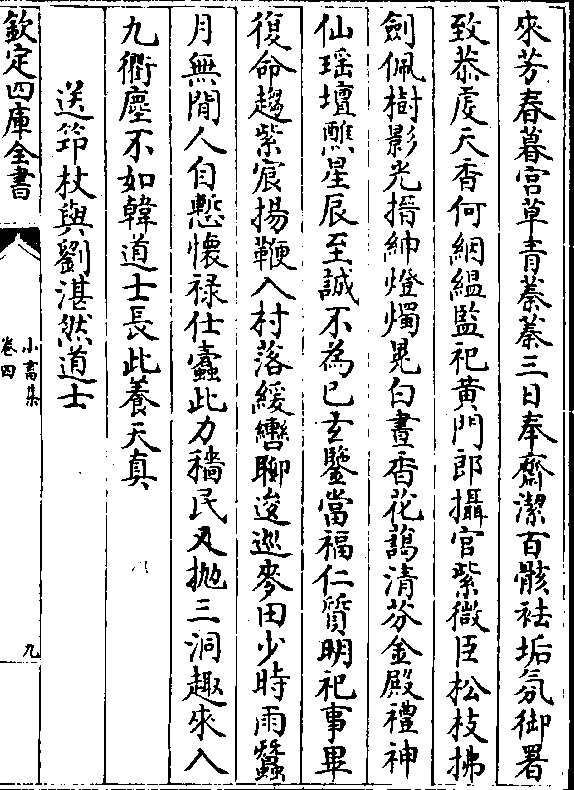 來芳春暮宫草青蓁蓁三日奉齋潔百骸袪垢氛御署
致恭虔天香何絪緼監祀黄門郎攝官紫微臣松枝拂
劍佩樹影光搢紳燈燭晃白晝香花藹清芬金殿禮神
仙瑶壇醮星辰至誠不為已𤣥鑒當福仁質明祀事畢
復命趨紫宸揚鞭入村落緩轡聊逡廵麥田少時雨蠶
月無閒人自慙懷禄仕蠧此力穡民又抛三洞趣來入
九衢塵不如韓道士長此養天真
送笻杖與劉湛然道士
欽定四庫全書
小畜集
卷四
九